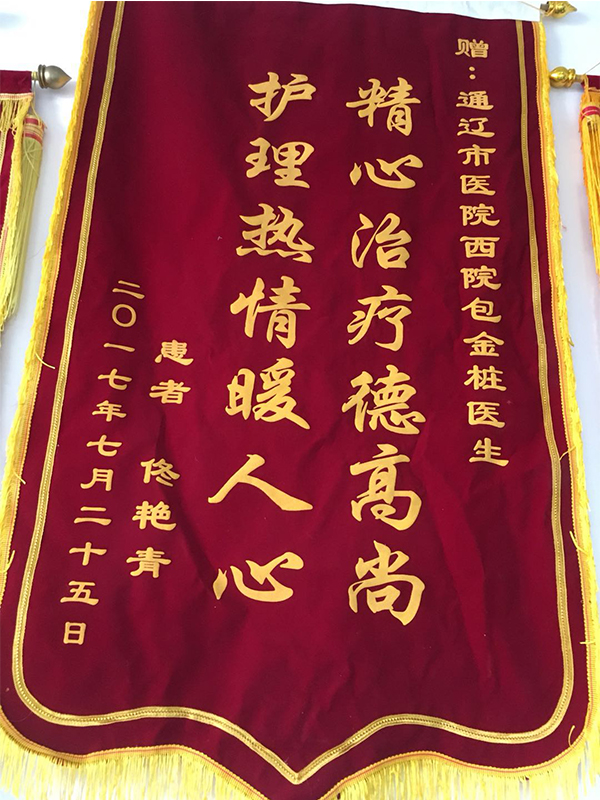 赠：通辽市医院西院包金桩医生
精心治疗德高尚
护理热情暖人心
患者 佟艳青
二〇一七年七月二十五日